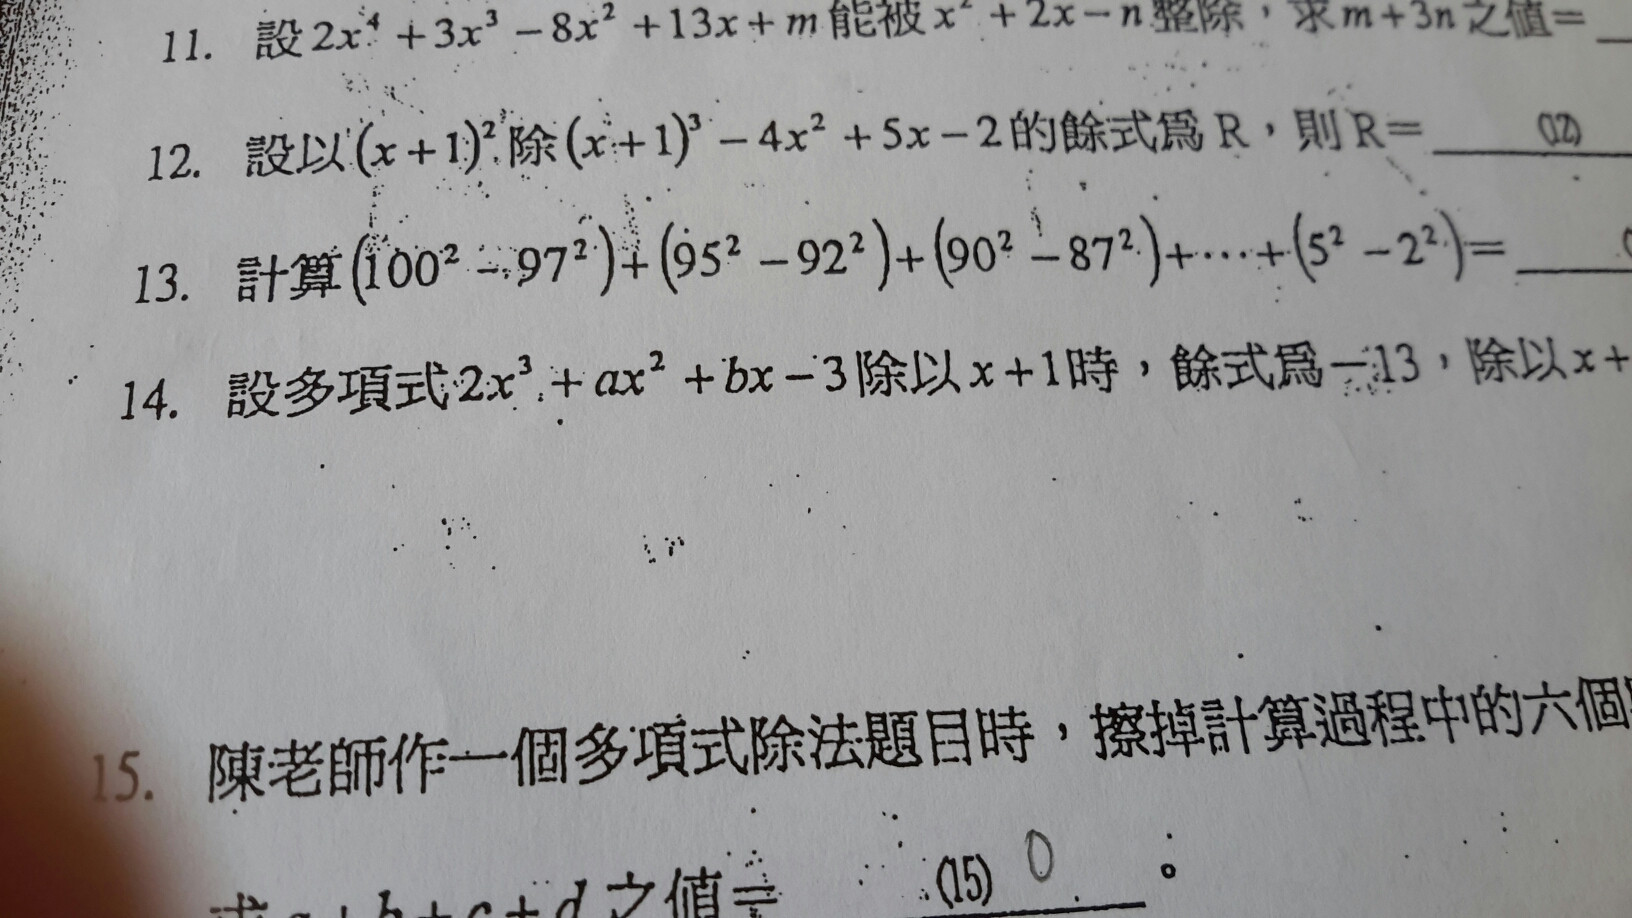 11. 設 2x⁴ + 3x³ − 8x² + 13x + m 能被 x² + 2x − n 整除，求 m + 3n 之值=
12. 設以 (x + 1)² 除 (x + 1)³ − 4x² + 5x − 2 的餘式為 R，則 R= (12)
13. 計算 (100² − 97²) + (95² − 92²) + (90² − 87²) + ⋯ + (5² − 2²) =
14. 設多項式 2x³ + ax² + bx − 3 除以 x + 1 時，餘式為 −13，除以 x +
15. 陳老師作一個多項式除法題目時，擦掉計算過程中的六個
求 a + b + c + d 之值= (15) 0 。